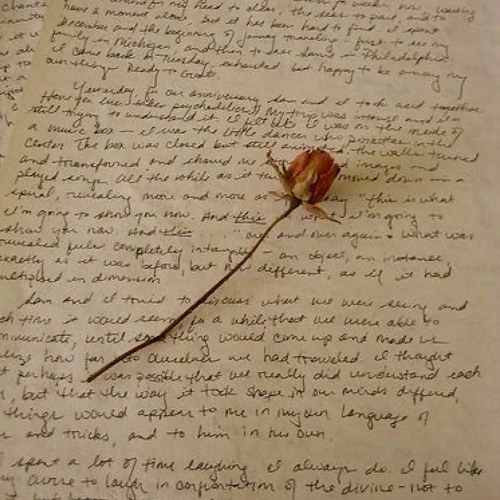 chants
moment for my head to clear, the dust to part, and to
have a moment alone, but it has been hard to find. I spent
December and the beginning of January traveling - first to see my
family in Michigan, and then to see Sam's in Philadelphia.
I came back on Tuesday, exhausted, but happy to be among my
own things. Ready to create.
Yesterday, for our anniversary Sam and I took acid together.
Have you ever taken psychedelics? My trip was intense and I'm
still trying to understand it. I felt like I was on the inside of
a music box - I was the little dancer who pirouettes in the
center. The box was closed but still animated, the walls turned
and transformed and showed me images and
played songs. All the while as it moved down in a
spiral, revealing more and more as say "this is what
I'm going to show you now. And this is what I'm going to
show you now. And this ... " over and over again. What was
revealed felt completely intangible - an object, an instance,
exactly as it was before, but now different, as if it had
multiplied in dimension.
Sam and I tried to discuss what we were seeing and
each time it would seem for a while that we were able to
communicate, until something would come up and made us
realize how far into ourselves we had traveled. I thought
that perhaps it was possible that we really did understand each
other, but that the way it took shape in our minds differed,
things would appear to me in my own language of
and tricks, and to him in his own.
spent a lot of time laughing. I always do. I feel like
to laugh in confrontation of the divine - not to